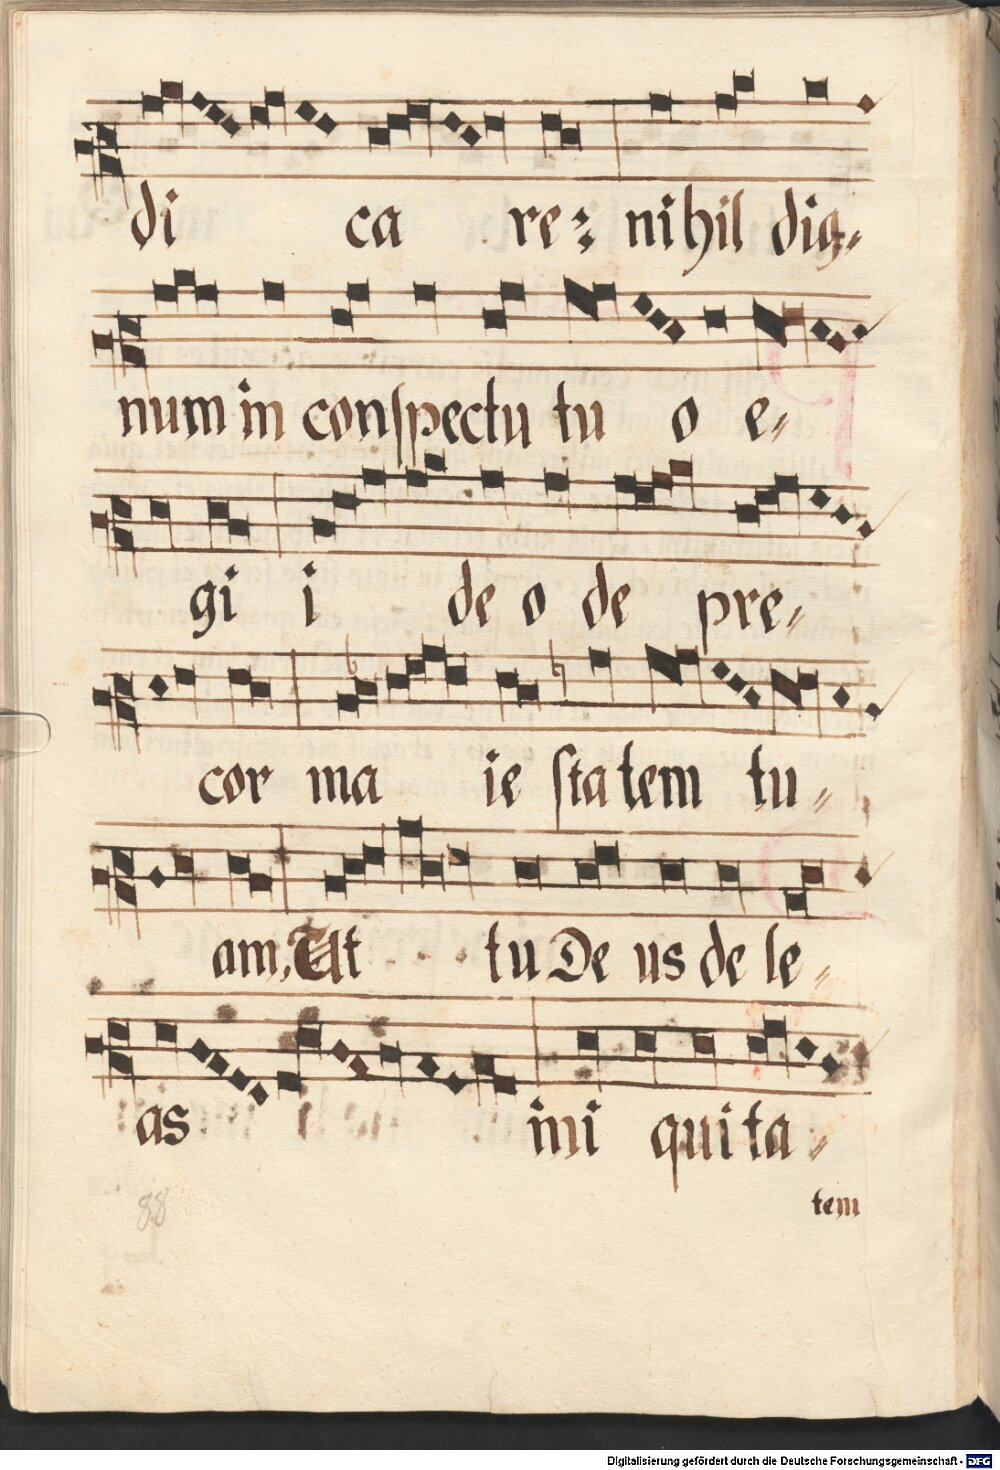 di ca re: nihil dig-
num in conspectu tu o e-
gi i de o de pre-
cor ma ie sta tem tu-
am, Ut tu De us de le-
as ini quita-
tem
88
Digitalisierung gefördert durch die Deutsche Forschungsgemeinschaft - DFG